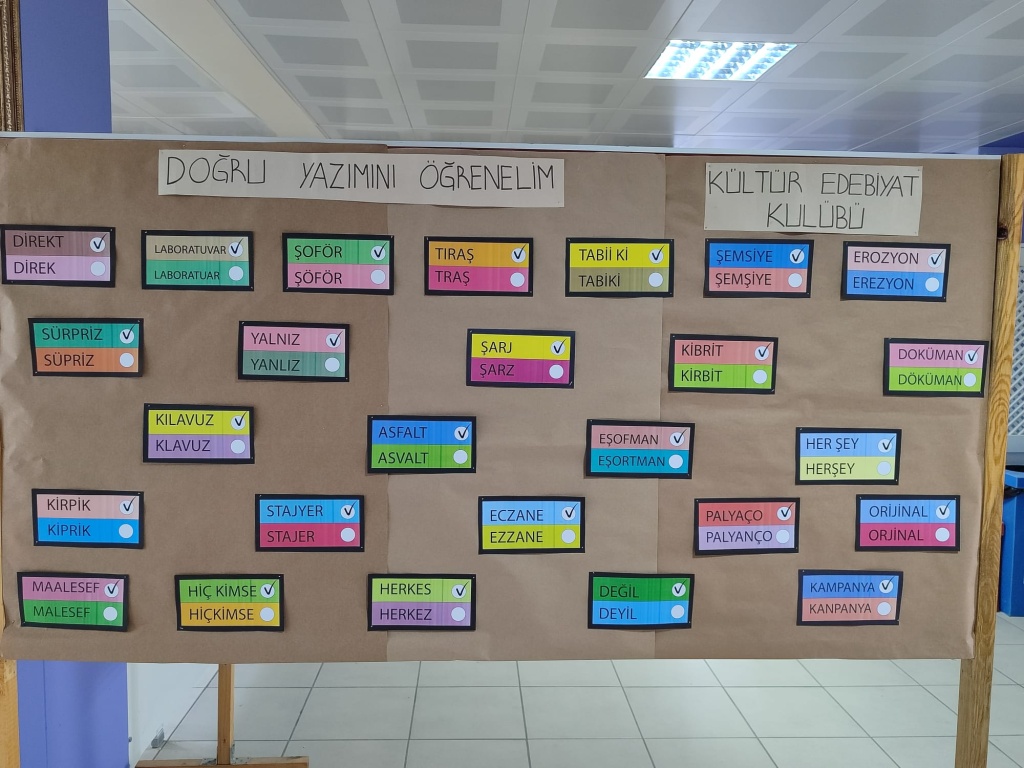 DOĞRU YAZIMINI ÖĞRENELİM
KÜLTÜR EDEBİYAT
KULÜBÜ
DİREKT
DİREK
LABORATUVAR
LABORATUAR
ŞOFÖR
ŞÖFÖR
TIRAŞ
TRAŞ
TABİİ Kİ
TABİKİ
ŞEMSİYE
ŞEMŞİYE
EROZYON
EREZYON
SÜRPRİZ
SÜPRİZ
YALNIZ
YANLIZ
ŞARJ
ŞARZ
KİBRİT
KİRBİT
DOKÜMAN
DÖKÜMAN
KILAVUZ
KLAVUZ
ASFALT
ASVALT
EŞOFMAN
EŞORTMAN
HER ŞEY
HERŞEY
KİRPİK
KİPRİK
STAJYER
STAJER
ECZANE
EZZANE
PALYAÇO
PALYANÇO
ORİJİNAL
ORJİNAL
MAALESEF
MALESEF
HİÇ KİMSE
HİÇKİMSE
HERKES
HERKEZ
DEĞİL
DEYİL
KAMPANYA
KANPANYA